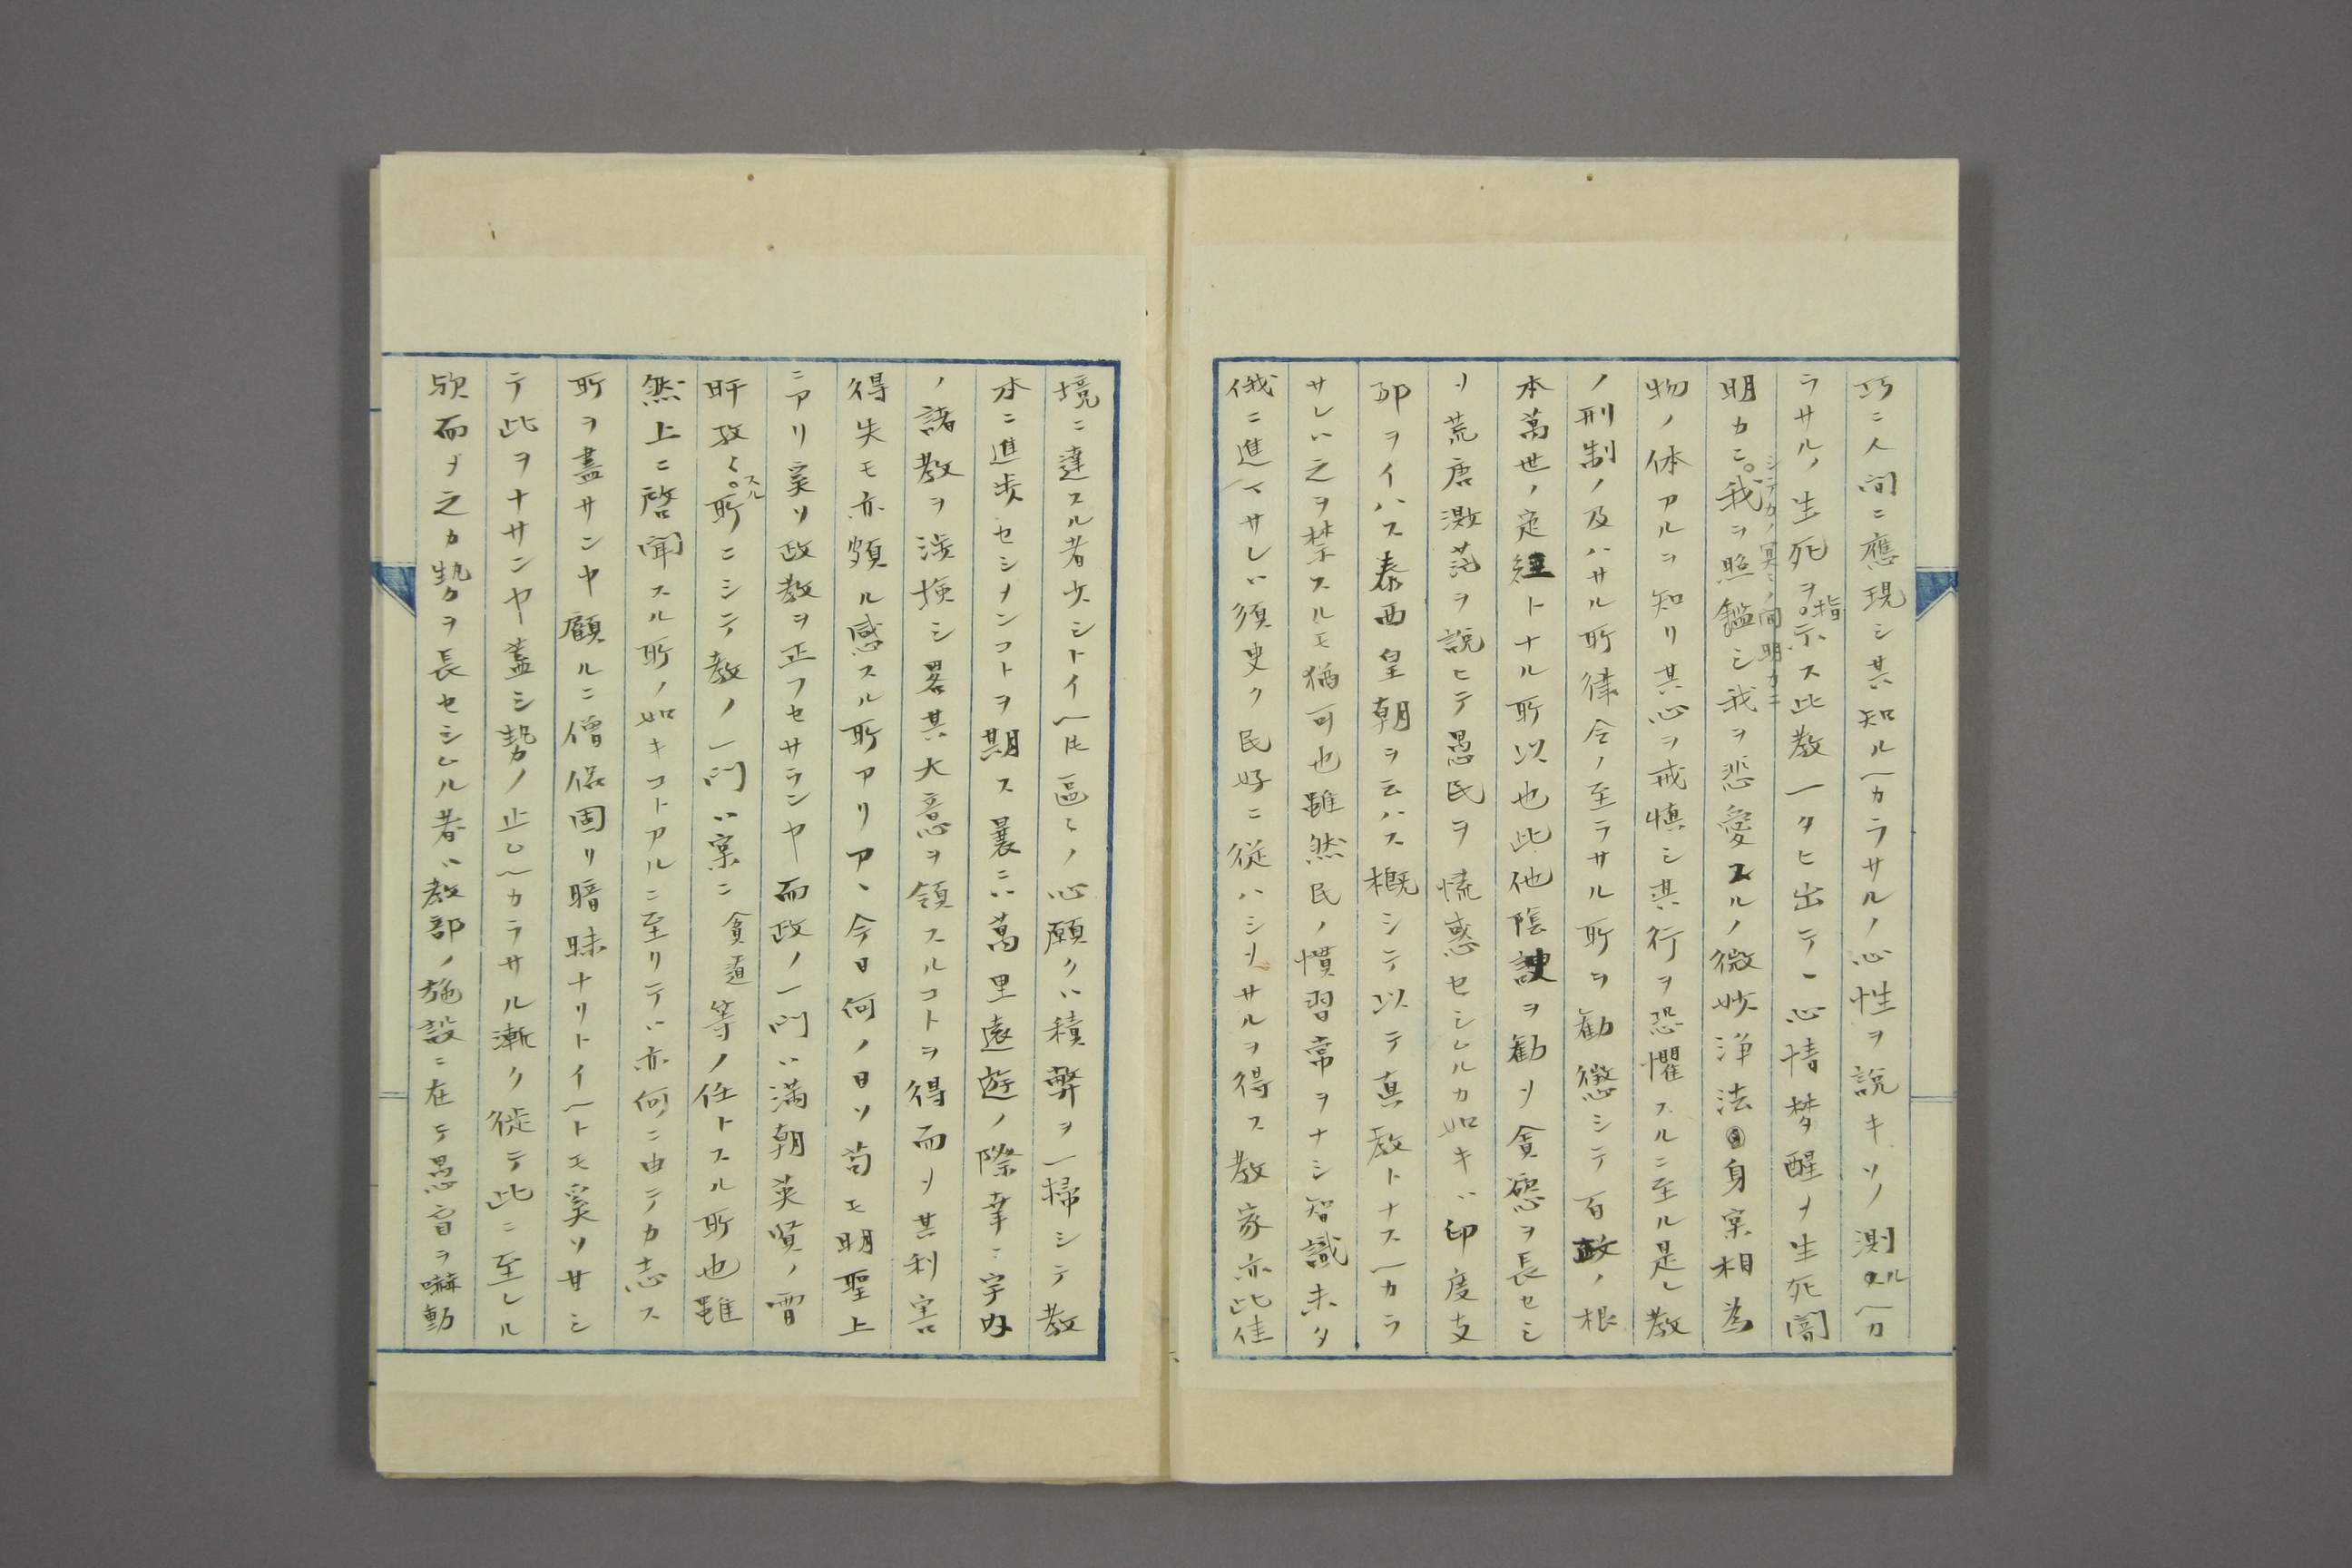 巧ニ人間ニ應現シ其知ルヘカラサルノ心性ヲ説キソノ測ルヘカ
ラサルノ生死ヲ指示ス此教一タヒ出テ一心情梦醒メ生死闇
シテカノ冥ニノ間明カニ
明カニ我ヲ照鑑シ我ヲ悲愛スルノ微妙浄法身実相為
物ノ体アルヲ知リ其心ヲ戒慎シ其行ヲ恐懼スルニ至ル是レ教
ノ刑制ノ及ハサル所律令ノ至ラサル所ヲ勧懲シテ百政ノ根
本萬世ノ定経トナル所以也此他陰諛ヲ勧メ貪慾ヲ長セシ
メ荒唐渺茫ヲ説ヒテ愚民ヲ慌惑セシムルカ如キハ印度支
那ヲイハス泰西皇朝ヲ云ハス概シテ以テ真教トナスヘカラ
サレハ之ヲ禁スルモ猶可也雖然民ノ慣習常ヲナシ智識未タ
俄ニ進マサレハ須臾ク民好ニ従ハシメサルヲ得ス教家亦此佳
境ニ達スル者少シトイヘ𪜈區々ノ心願クハ積弊ヲ一掃シテ教
本ニ進歩セシメンコトヲ期ス曩ニハ萬里遠遊ノ際幸ニ宇内
ノ諸教ヲ渉検シ畧其大意ヲ領スルコトヲ得而メ其利害
得失モ亦頗ル感スル所アリアヽ今日何ノ日ソ苟モ明聖上
ニアリ奚ソ政教ヲ正フセサランヤ而政ノ一門ハ満朝英賢ノ宵
旰孜々スル所ニシテ教ノ一門ハ実ニ貧道等ノ任トスル所也雖
然上ニ啓聞スル所ノ如キコトアルニ至リテハ亦何ニ由テカ志ス
所ヲ盡サンヤ顧ルニ僧侶固リ暗昧ナリトイヘトモ奚ソ甘シ
テ此ヲナサンヤ蓋シ勢ノ止ムヘカラサル漸ク従テ此ニ至レル
欤而メ之カ勢ヲ長セシムル者ハ教部ノ施設ニ在テ愚盲ヲ嚇動